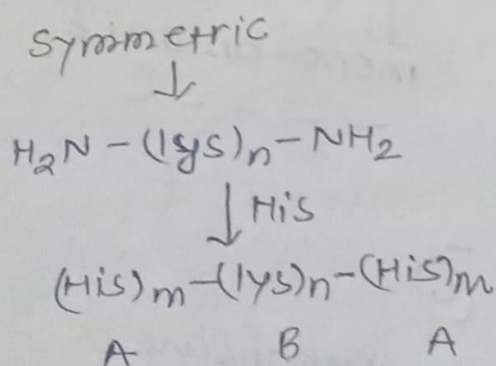 Symmetric
↓
H₂N-(lys)ₙ-NH₂
↓ His
(His)ₘ-(lys)ₙ-(His)ₘ
A B A